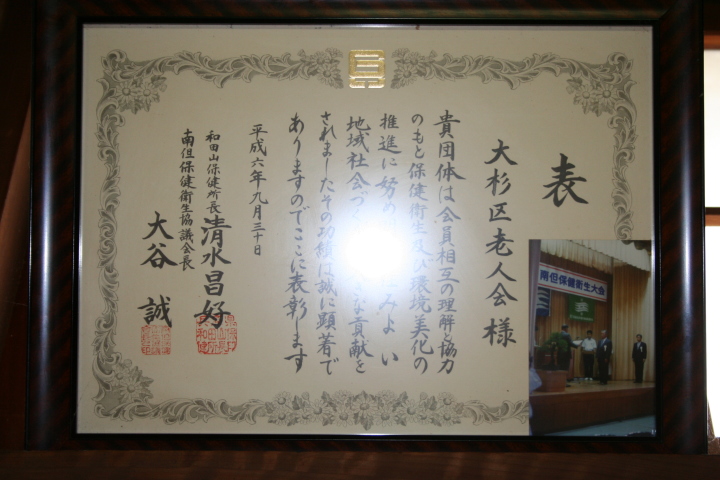 表
大杉区老人会様
貴団体は会員相互の理解と協力
のもと保健衛生及び環境美化の
推進に努め みよい
地域社会づ きな貢献を
されましたその功績は誠に顕著で
ありますのでここに表彰します
平成六年九月三十日
和田山保健所長 清水昌好
南但保健衛生協議会長
大谷誠
南但保健衛生大会